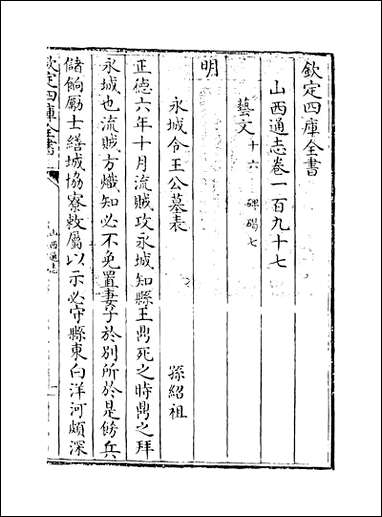 欽定四庫全書
山西通志卷一百九十七
藝文十六 碑碣七
明
永城令王公墓表 孫紹祖
正德六年十月流賊攻永城知縣王鼎死之時鼎之拜
永城也流賊方熾知必不免置妻子於別所於是飭兵
儲餉勵士繕城協寮敕屬以示必守縣東白洋河頗深
欽定四庫全書
山西通志
一